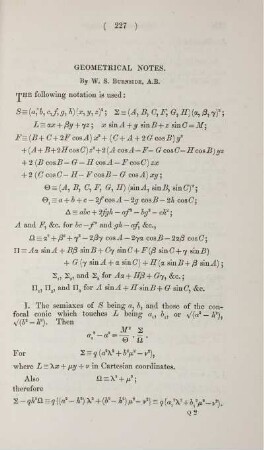 ( 227 )
GEOMETRICAL NOTES.
By W. S. BURNSIDE, A.B.
THE following notation is used:
S≡(a, b, c, f, g, h) (x, y, z)²; Σ≡(A, B, C, F, G, H) (α, β, γ)²;
L≡αx + βy + γz; x sin A + y sin B + z sin C = M;
F≡(B + C + 2F cos A) x² + (C + A + 2G cos B) y²
+ (A + B + 2H cos C) z² + 2 (A cos A – F – G cos C – H cos B) yz
+ 2 (B cos B – G – H cos A – F cos C) zx
+ 2 (C cos C – H – F cos B – G cos A) xy;
Θ≡(A, B, C, F, G, H) (sin A, sin B, sin C)²;
Θ₁≡a + b + c – 2f cos A – 2g cos B – 2h cos C;
Δ≡abc + 2fgh – af² – bg² – ch²;
A and F, &c. for bc – f² and gh – af, &c.,
Ω≡α² + β² + γ² – 2βγ cos A – 2γα cos B – 2αβ cos C;
Π≡Aα sin A + Bβ sin B + Cγ sin C + F (β sin C + γ sin B)
+ G (γ sin A + α sin C) + H (α sin B + β sin A);
Σ₁, Σ₂, and Σ₃ for Aα + Hβ + Gγ, &c.;
Π₁, Π₂, and Π₃ for A sin A + H sin B + G sin C, &c.
1. The semiaxes of S being a, b, and those of the con-
focal conic which touches L being a₁, b₁, or √(a² – h²),
√(b² – h²). Then
a₁² – a² = M²/Θ · Σ/Ω.
For Σ≡q (a²λ² + b²μ² – ν²),
where L≡λx + μy + ν in Cartesian coordinates.
Also Ω≡λ² + μ²;
therefore
Σ – qh²Ω≡q {(a² – h²) λ² + (b² – h²) μ² – ν²} ≡ q (a₁²λ² + b₁²μ² – ν²).
Q 2